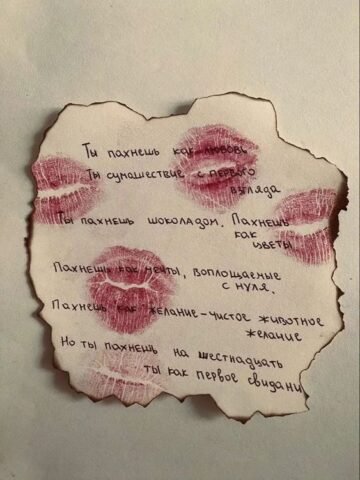 Ты пахнешь как любовь
Ты сумашествие с первого
взгляда
Ты пахнешь шоколадом. Пахнешь
как
цветы
Пахнешь как мечты, воплощаемые
с нуля.
Пахнешь как желание-чистое животное
желание
Но ты пахнешь на шестнадцать
ты как первое свидани